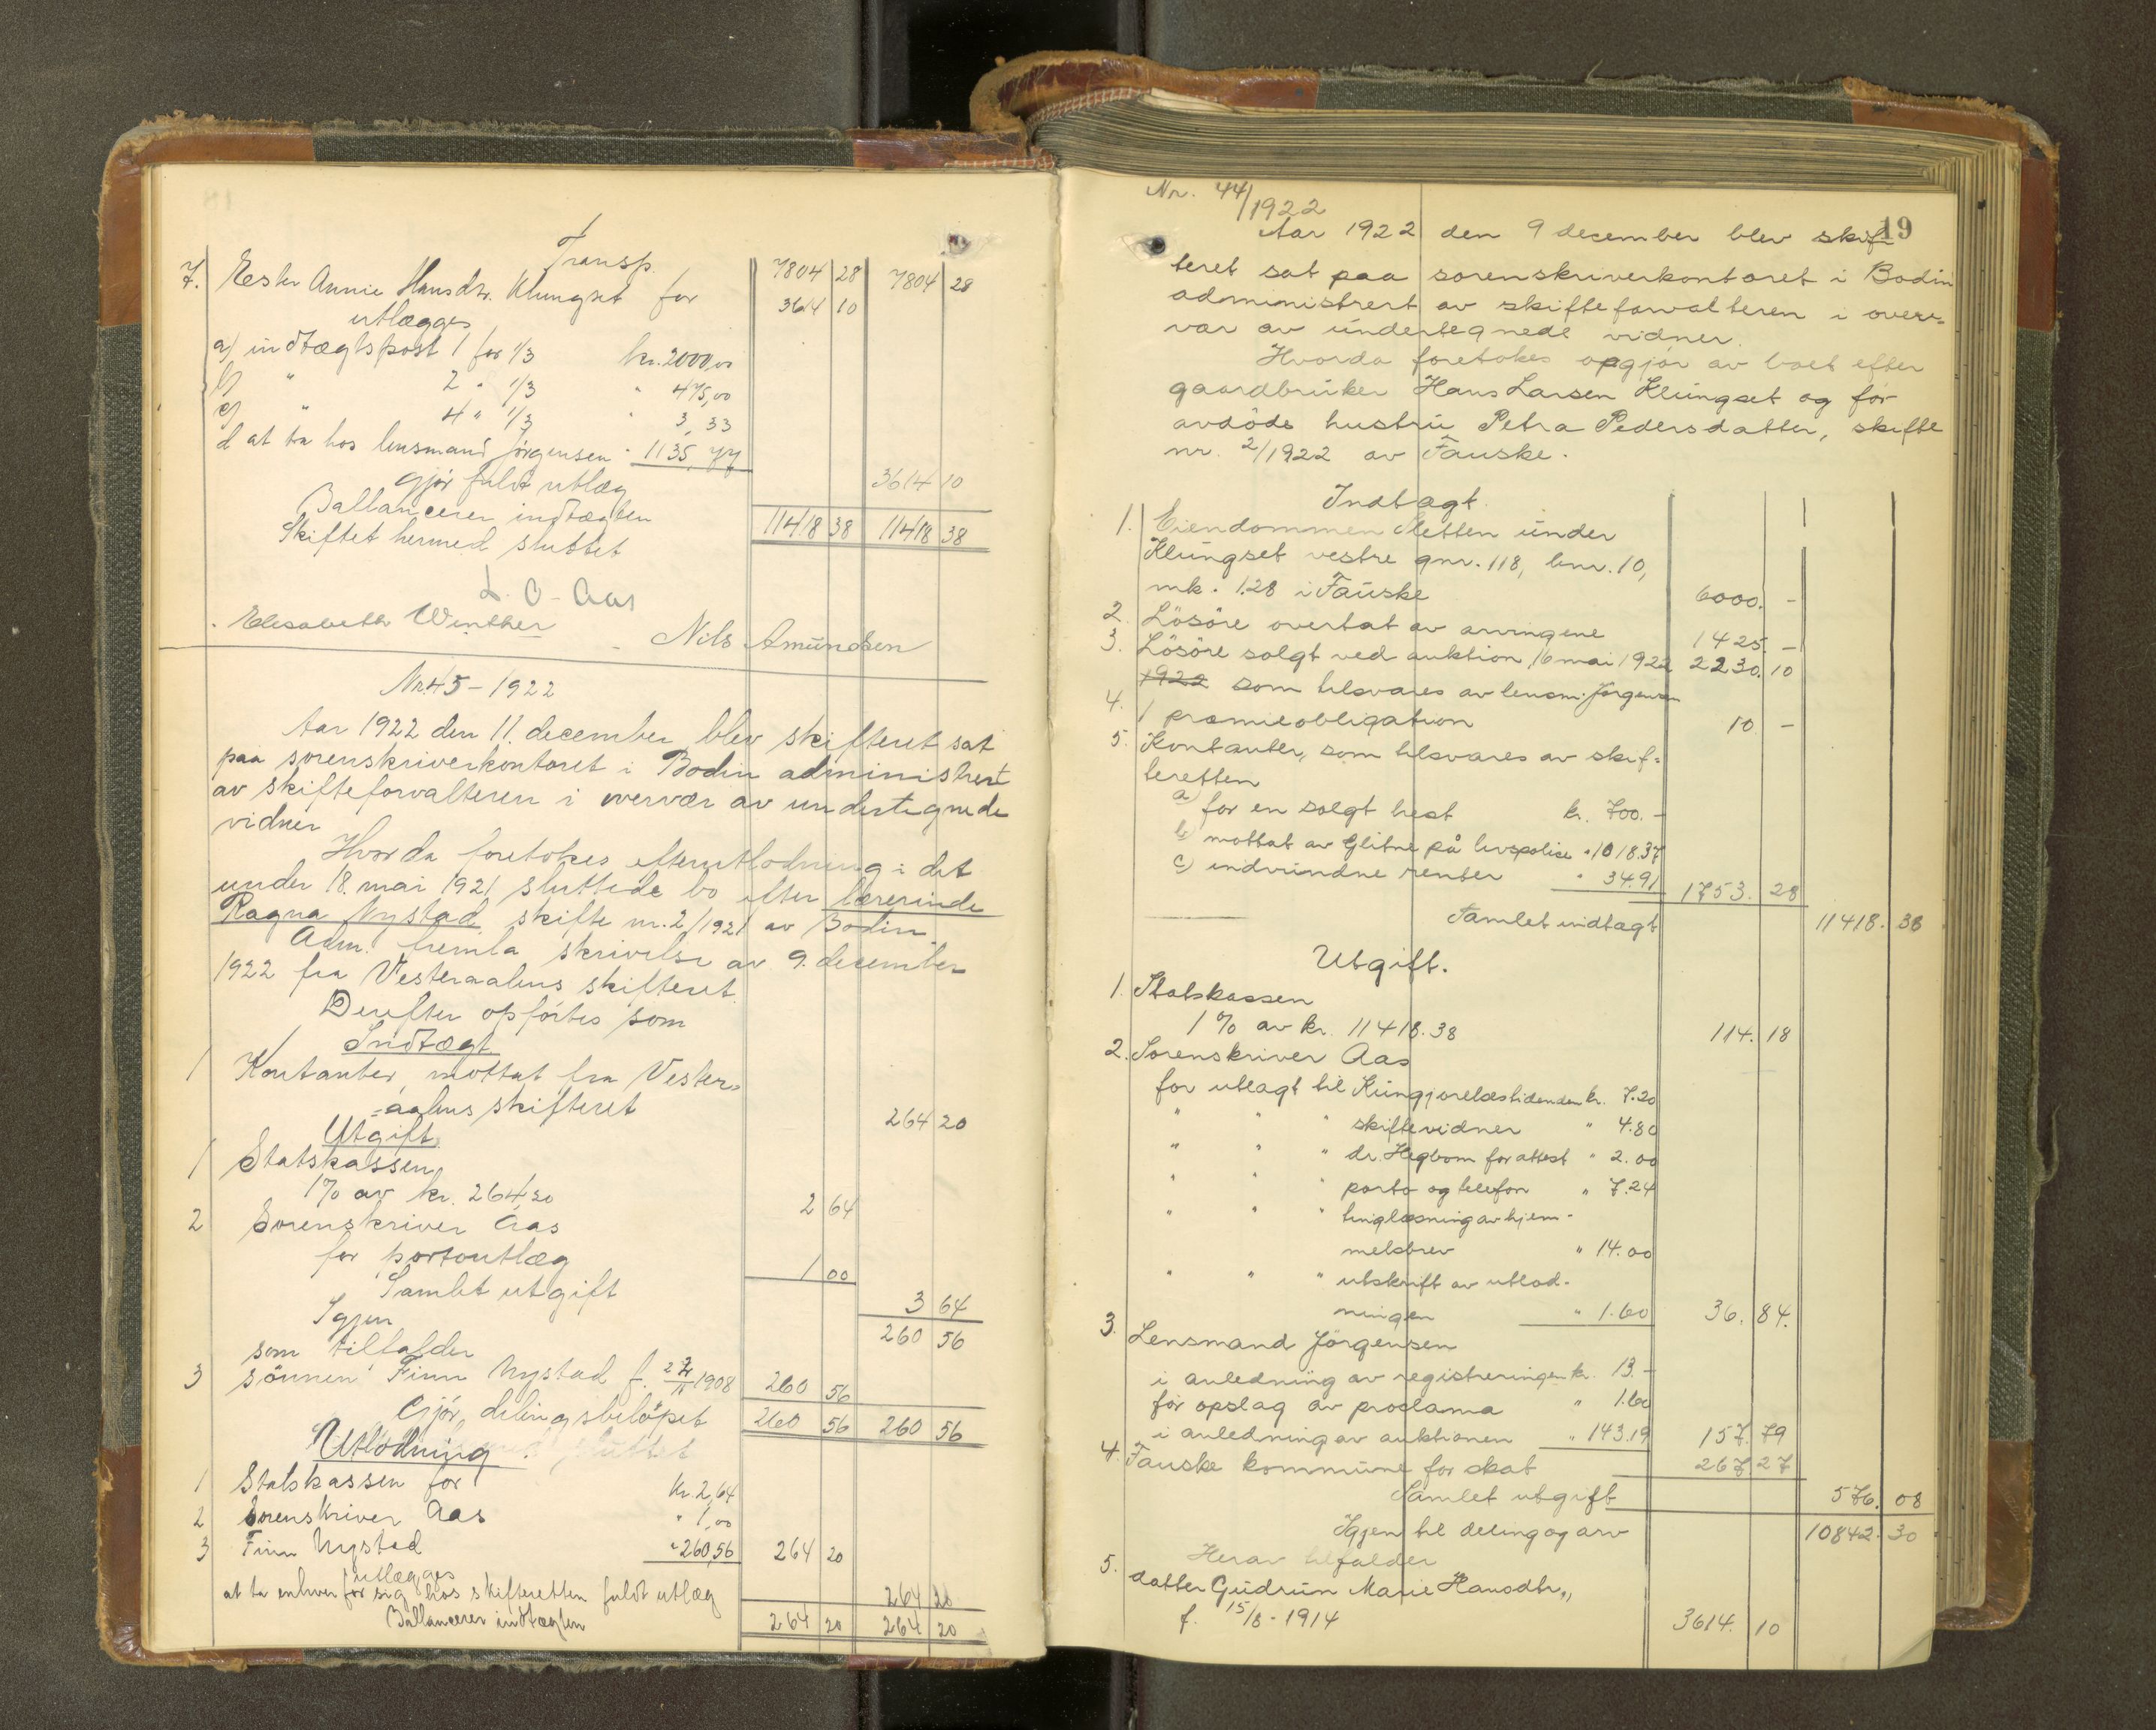 Transp. 7804 28 7804 28
7. Ester Annie Hansdtr. Klungset for 3614 10
utlægges
a) indtægtspost 1 for 1/3 kr. 2000,00
b) " 2 " 1/3 " 475,00
c) " 4 " 1/3 " 3,33
d at ta hos lensmand Jørgensen " 1135,77
gjør fuldt utlæg 3614 10
Ballancerer indtægten 11418 38 11418 38
Skiftet hermed sluttet
L. O. Aas
Elisabeth Winther
Nils Amundsen
Nr. 45 - 1922
Aar 1922 den 11. december blev skifteret sat
paa sorenskriverkontoret i Bodin administrert
av skifteforvalteren i overvær av undertegnede
vidner
Hvorda foretokes efterutlodning i det
under 18. mai 1921 sluttede bo efter lærerinde
Ragna Nystad, skifte nr. 2/1921 av Bodin.
Adm. fremla skrivelse av 9. december
1922 fra Vesteraalens skifteret.
Derefter opførtes som
Indtægt
1 Kontanter, mottat fra Vester=
=aalens skifteret 264 20
Utgift
1 Statskassen
1% av kr. 264,20 2 64
2 Sorenskriver Aas
for portoutlæg 1 00
Samlet utgift 3 64
Igjen 260 56
som tilfalder
3 sønnen Finn Nystad f. 1908 260 56
Gjør delingsbeløpet 260 56 260 56
Utlodning
1 Statskassen for Kr. 2,64
2 Sorenskriver Aas " 1,00
3 Finn Nystad " 260,56 264 20
utlægges
at ta enhver for sig hos skifteretten fuldt utlæg 264 20
Ballancerer indtægten 264 20 264 20
Nr. 44/1922
19
Aar 1922 den 9 december blev skif
teret sat paa sorenskriverkontoret i Bodin
administrert av skifteforvalteren i over=
vær av undertegnede vidner.
Hvorda foretokes opgjør av boet efter
gaardbruker Hans Larsen Klungset og før
avdøde hustru Petra Pedersdatter, skifte
nr. 2/1922 av Fauske.
Indtægt.
1. Eiendommen Sletten under
Klungset vestre gnr. 118, bnr. 10,
mk. 1.28 i Fauske 6000. -
2. Løsøre overtat av arvingene 1425. -
3. Løsøre solgt ved auktion 16 mai 1922 2230. 10
1922 som tilsvares av lensm. Jørgensen
4. 1 præmieobligation 10 -
5. Kontanter, som tilsvares av skif=
teretten
a) for en solgt hest kr. 700. -
b) mottat av Glitne på livspolise " 1018.37
c) indvundne renter " 34.91 1753. 28
Samlet indtægt 11418. 38
Utgift.
1. Statskassen
1% av kr. 11418.38 114. 18
2. Sorenskriver Aas
for utlagt til Kungjørelsestidenden kr. 7.20
" " " skiftevidner " 4.80
" " " dr. Hegbom for attest " 2.00
" " " porto og telefon " 7.24
" " " tinglæsning av hjem-
melsbrev " 14.00
" " " utskrift av utlod-
ningen " 1.60 36. 84.
3. Lensmand Jørgensen
i anledning av registreringen kr. 13. -
for opslag av proclama " 1.60
i anledning av auktionen " 143.19 157. 79
4. Fauske kommune for skat 267 27
Samlet utgift 576. 08
Igjen til deling og arv 10842. 30
Herav tilfalder
5. datter Gudrun Marie Hansdtr.,
f. 15/8 - 1914 3614. 10